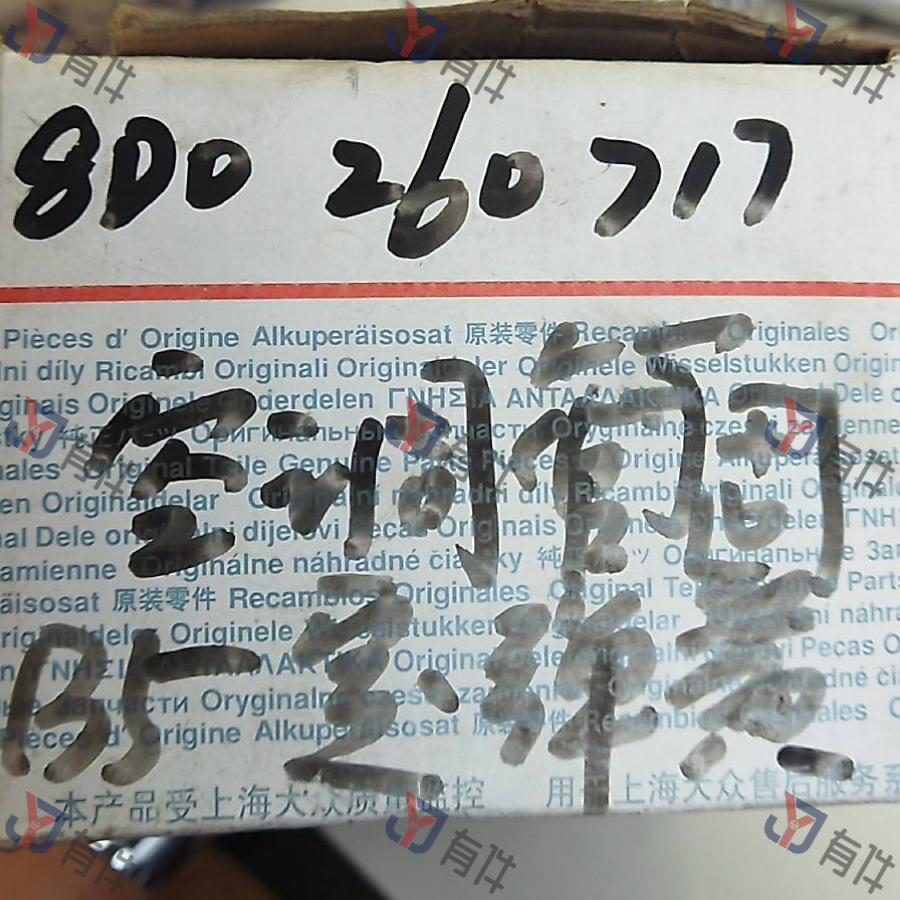 8D0 260 717
Pièces d' Origine Alkuperäisosat 原装零件 Recambios Originales Ori
lni díly Ricambi Originali Originaldeler Originele Wisselstukken Origin
ginais Originele Onderdelen ΓΝΗΣΙΑ ΑΝΤΑΛΛΑΚΤΙΚΑ Original Dele o
純正パーツ Оригинальные Запчасти Oryginalne części zamienne
nales Original Teile Genuine Parts Pièces d' Origine Alkuperäisosat
en Originaldelar Originální náhradní díly Ricambi Originali Original
al Dele originalni dijelovi Pecas Originais Originele Onderdelen ΓΝΗ
amienne Originálne náhradné čiastky 純正パーツ Оригинальные Зап
äisosat 原装零件 Recambios Originales Original Teile Genuine Parts
riginaldeler Originele Wisselstukken Originaldelar Originální náhra
n ΓΝΗΣΙΑ ΑΝΤΑΛΛΑΚΤΙΚΑ Original Dele originalni dijelovi Pecas O
ые Запчасти Oryginalne części zamienne Originálne náhradné čia
Pièces d' Origine Alkuperäisosat 原装零件 Recambios Originales O
B5 弹簧
本产品受上海大众质量监控 用于上海大众售后服务系
有件